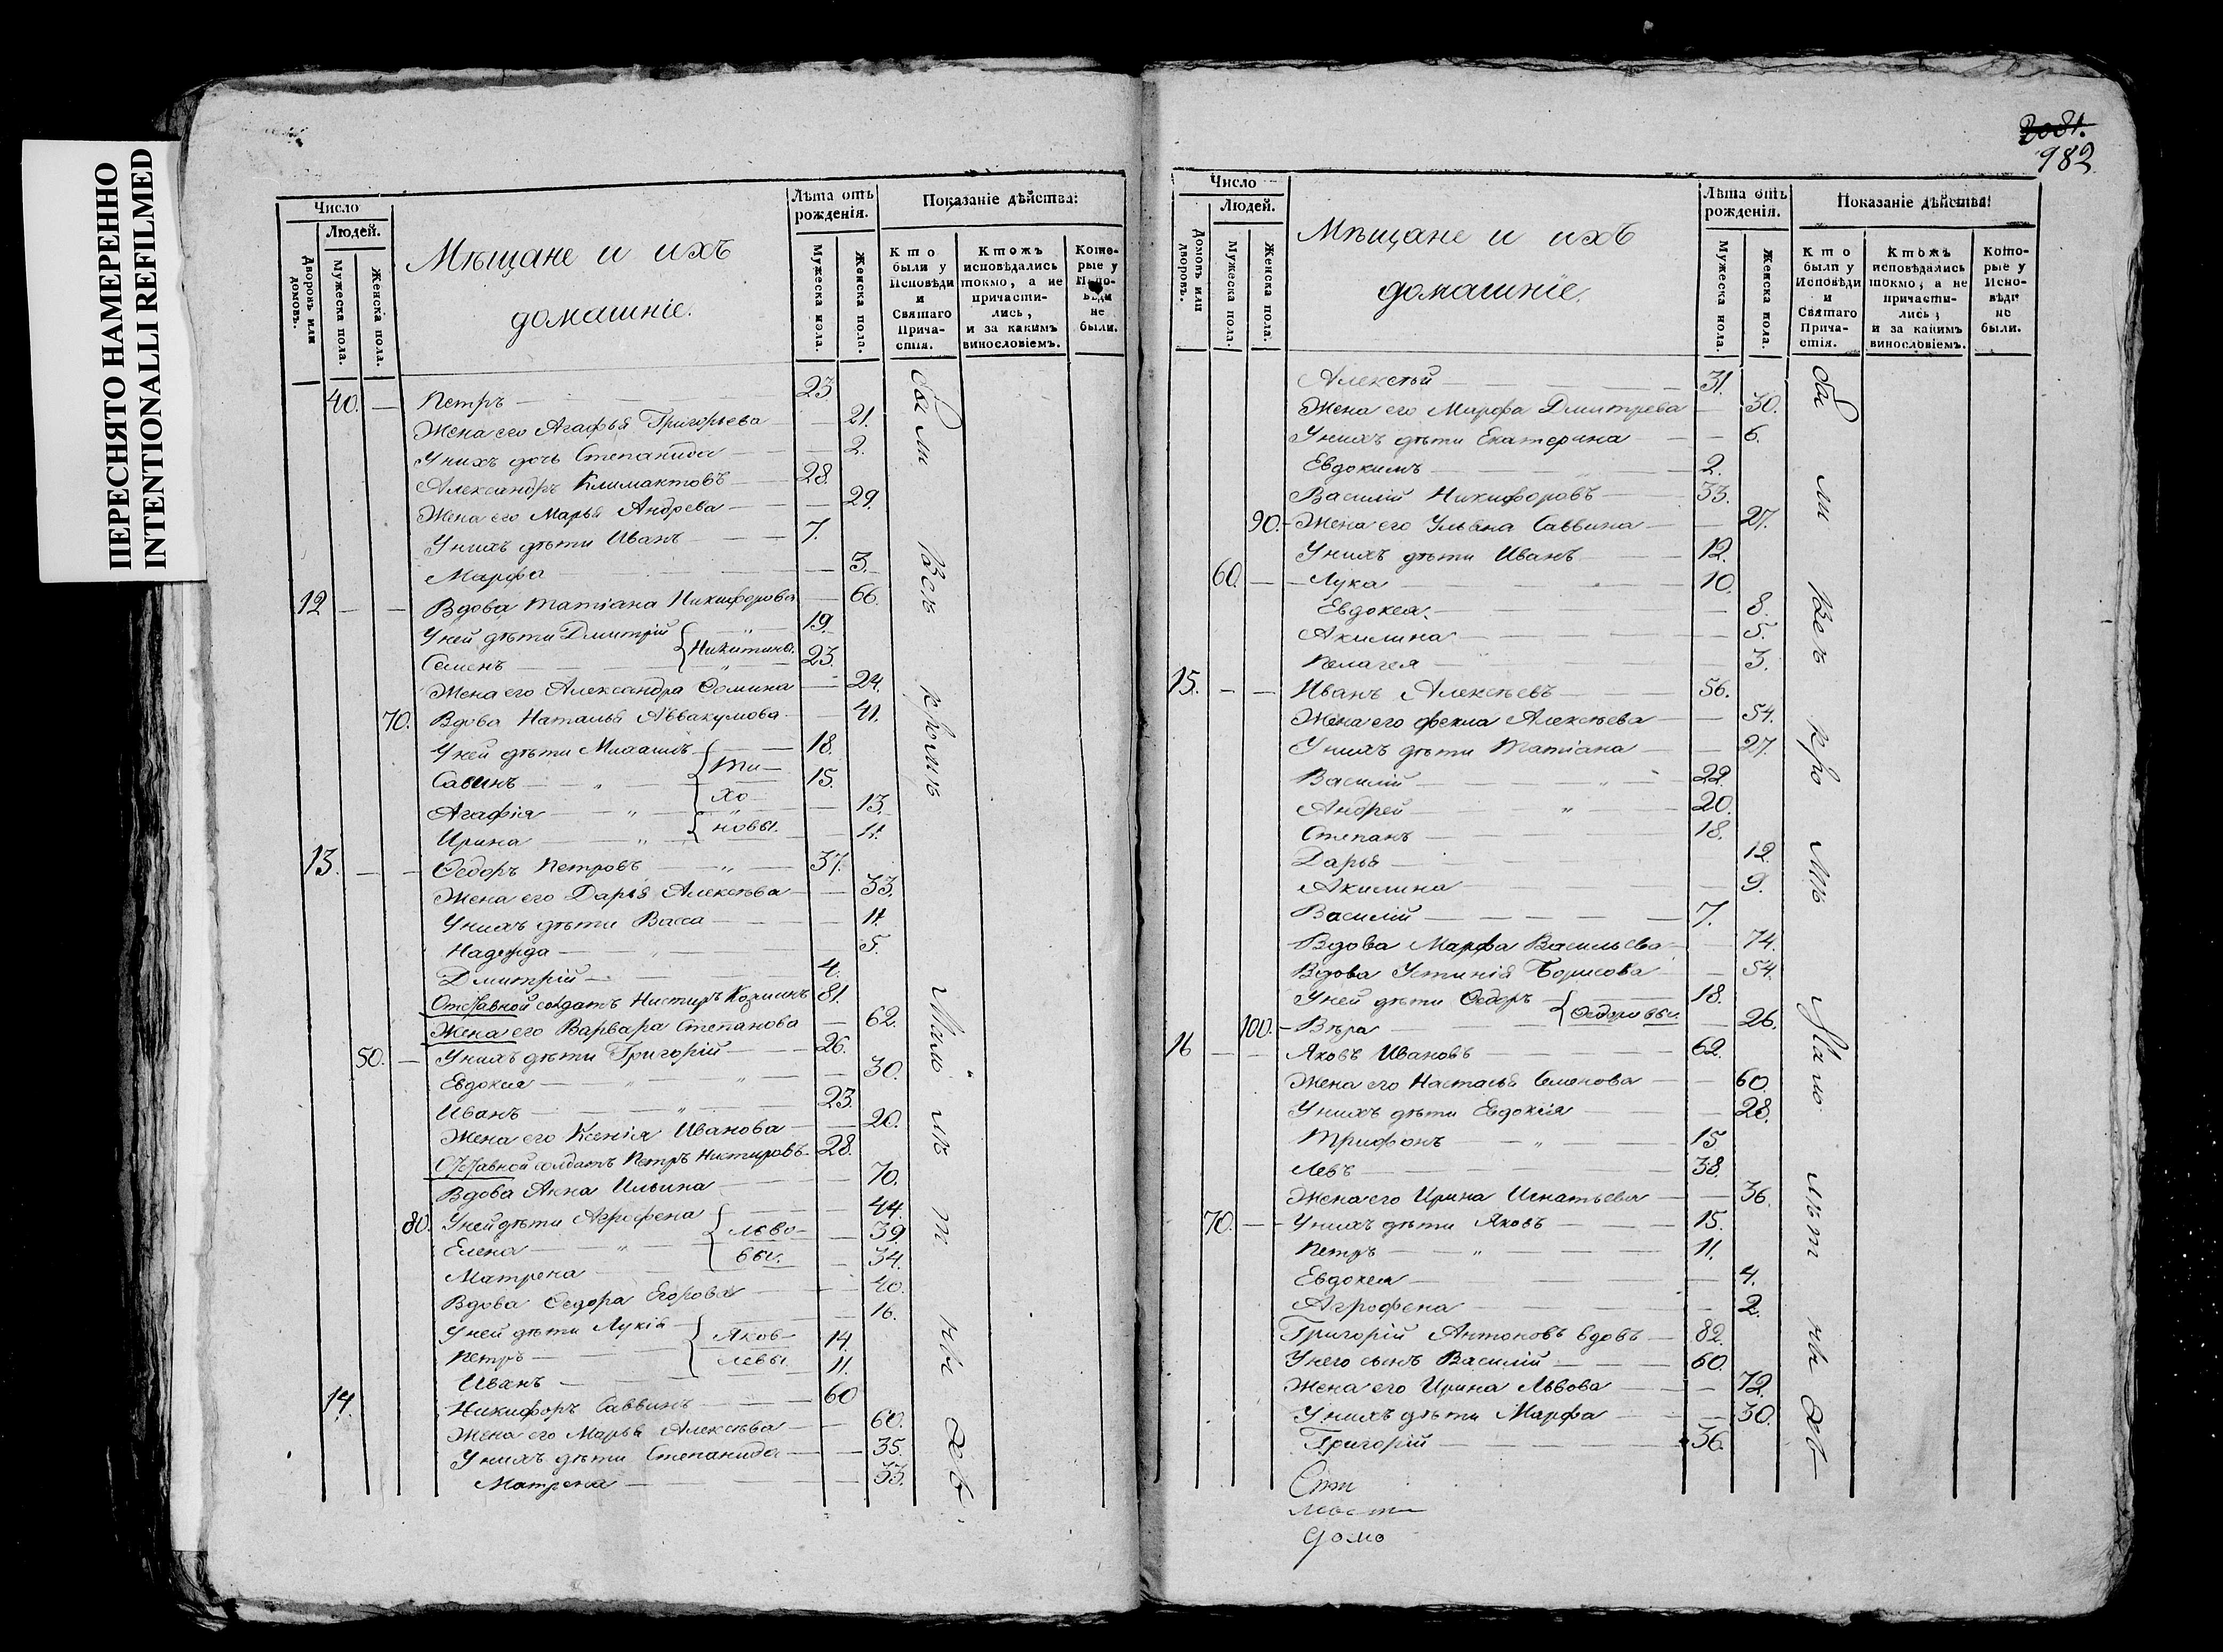 ПЕРЕСНЯТО НАМЕРЕННО
INTENTIONALLI REFILMED
Число
Людей.
Дворовъ или домовъ.
Мужеска пола.
Женска пола.
Мѣщане и ихъ
домашніе.
Лѣта отъ рожденія.
Мужеска пола.
Женска пола.
Показаніе дѣйства:
Кто были у Исповѣди и Святаго Прича-стія.
Ктожъ исповѣдались токмо, а не причасти-лись, и за какимъ винословіемъ.
Кото-рые у Испо-вѣди не были.
40. — Петръ — 23
Жена его Агафья Григорьева — 21.
У нихъ дочь Степанида — 2.
Александръ Климактовъ — 28.
Жена его Марья Андреева — 29.
У нихъ дѣти Иванъ — 7.
Марфа — 3.
12 — — Вдова Татіана Никифорова — 66.
У ней дѣти Дмитрій — 19.
Семенъ { Никитины. 23.
Жена его Александра Ѳомина — 24.
70. Вдова Наталья Аввакумова — 41.
У ней дѣти — 18.
Савинъ — { Ти- 15.
Агафія — { хо- 13.
Ирина — { новы. 11.
13. — — Ѳедоръ Петровъ — 37.
Жена его Дарья Алексѣва — 33.
У нихъ дѣти Васса — 11.
Надежда — 5.
Дмитрій — 4.
Отставной солдатъ Нистиръ Козминъ 81.
Жена его Варвара Степанова — 62.
50. — У нихъ дѣти Григорій — 26.
Евдокия — 30.
Иванъ — 23.
Жена его Ксенія Иванова — 20.
Отставной солдатъ Петръ Нистировъ — 28.
Вдова Анна Ильина — 70.
80. У ней дѣти Агрофена — 44.
Елена — { Льво- 39.
Матрена — { вы. 34.
Вдова Ѳедора Егорова — 40.
У ней дѣти Лукія — 16.
Петръ — { Яков- 14.
Иванъ — { левы. 11.
14. Никифоръ Саввинъ — 60
Жена его Марья Алексѣва — 60.
У нихъ дѣти Степанида — 35.
Матрена — 33.
были Всѣ кромѣ Малолѣтныхъ
2081.
982
Число
Людей.
Домовъ или дворовъ.
Мужеска пола.
Женска пола.
Мѣщане и ихъ
домашніе.
Лѣта отъ рожденія.
Мужеска пола.
Женска пола.
Показаніе дѣйства:
Кто были у Исповѣди и Святаго Прича-стія.
Ктожъ исповѣдались токмо, а не причасти-лись, и за какимъ винословіемъ.
Кото-рые у Испо-вѣди не были.
Алексѣй — 31.
Жена его Марфа Дмитрева — 30.
У нихъ дѣти Екатерина — 6.
Евдокимъ — 2.
Василій Никифоровъ — 33.
90. — Жена его Ульяна Саввина — 27.
У нихъ дѣти Иванъ — 12.
60. — — Лука — 10.
Евдокея — 8.
Акилина — 5.
Пелагея — 3.
15. — — Иванъ Алексѣевъ — 56.
Жена его Фекла Алексѣева — 54.
У нихъ дѣти Татіана — 27.
Василій — 22
Андрей — 20.
Степанъ — 18.
Дарья — 12.
Акилина — 9.
Василій — 7.
Вдова Марфа Васильева — 74.
Вдова Устинія Борисова — 54.
У ней дѣти Ѳедоръ — 18.
100. — Вѣра — { Ѳедоровы. 26.
16 — — Яковъ Ивановъ — 62.
Жена его Настасья Семенова — 60
У нихъ дѣти Евдокія — 28.
Трифонъ — 15
Левъ — 38.
Жена его Ирина Игнатьева — 36.
70. — — У нихъ дѣти Яковъ — 15.
Петръ — 11.
Евдокея — 4.
Агрофена — 2.
Григорій Антоновъ вдовъ — 82.
У него сынъ Василій — 60.
Жена его Ирина Львова — 72.
У нихъ дѣти Марфа — 30.
Григорій — 36.
были Всѣ кромѣ Малолѣтныхъ
домо